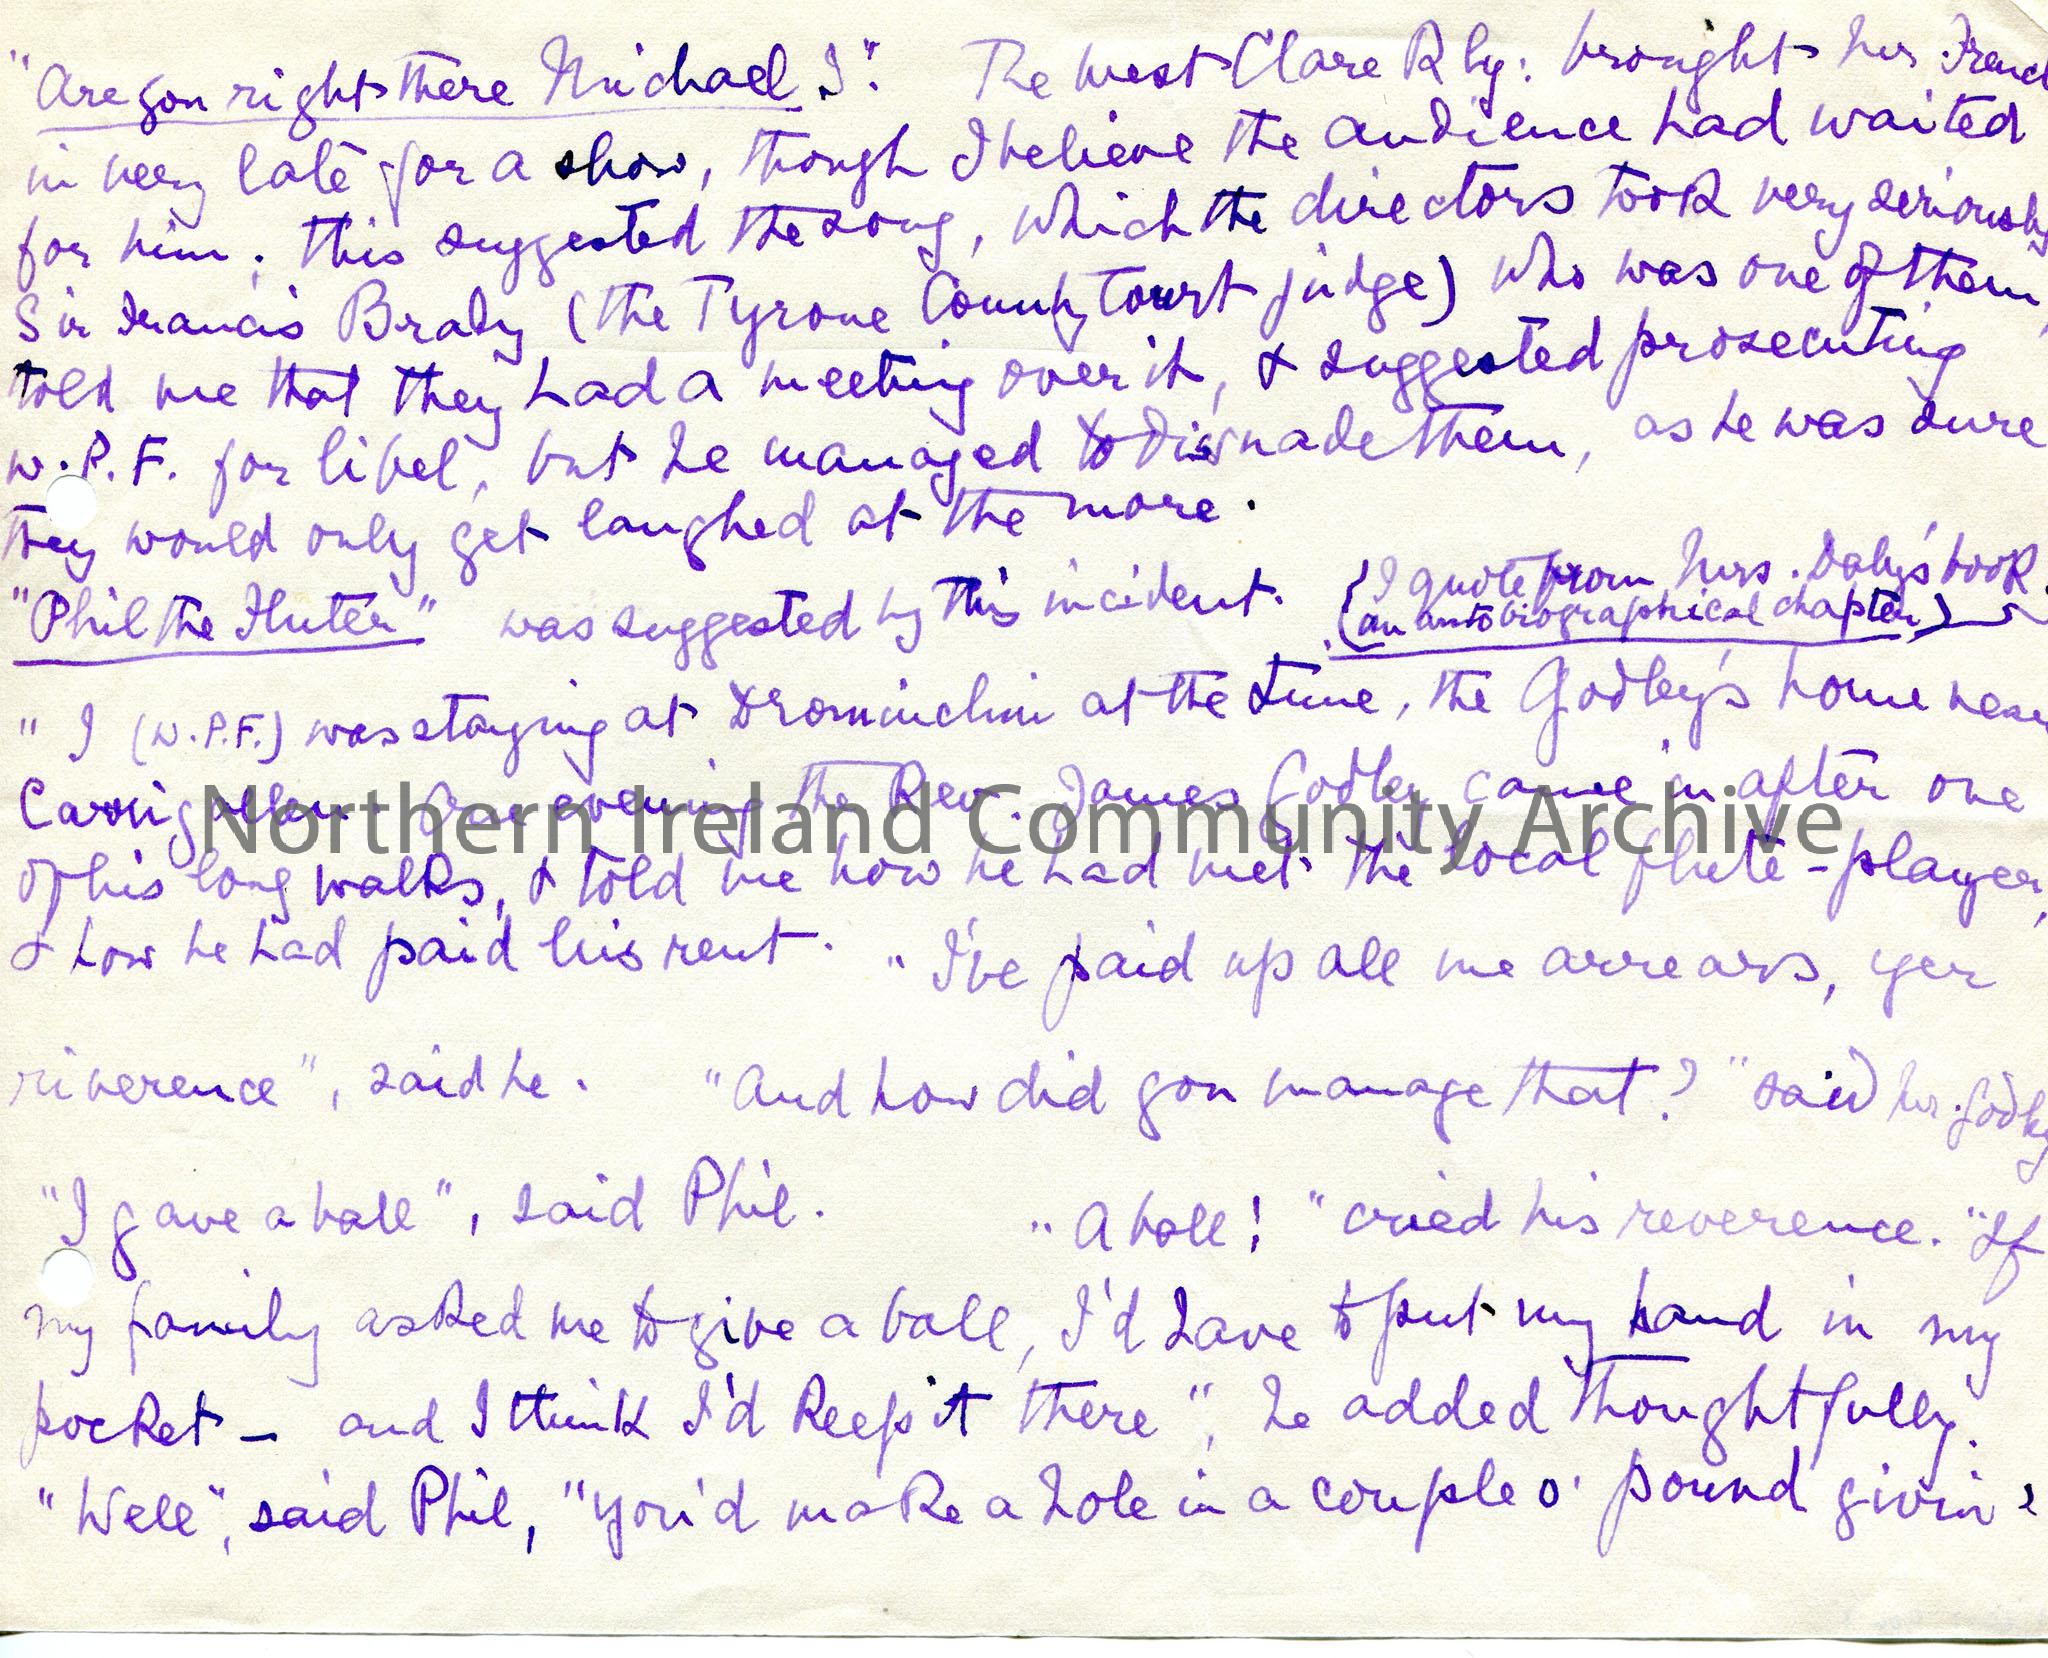 "Are you right there Michael?". The West Clare Rly: brought Mr. French
in very late for a show, though I believe the audience had waited
for him; this suggested the song, which the directors took very seriously
Sir Francis Brady (the Tyrone County Court judge) who was one of them,
told me that they had a meeting over it, & suggested prosecuting
W.P.F. for libel, but he managed to dissuade them, as he was sure
they would only get laughed at the more.
"Phil the Fluter" was suggested by this incident. {I quote from Mrs. Daly's book
(an autobiographical chapter)
" I (W.P.F.) was staying at Drominchin at the time, the Godley's home near
Carrigallen. One evening the Rev. James Godley came in after one
of his long walks, & told me how he had met the local flute-player,
& how he had paid his rent. "I've paid up all me arrears, yer
riverence", said he. "And how did you manage that?" said Mr. Godley
"I gave a ball", said Phil. "A ball!" cried his reverence. "If
my family asked me to give a ball, I'd have to put my hand in my
pocket – and I think I'd keep it there", he added thoughtfully.
"Well", said Phil, "You'd make a hole in a couple o' pound givin'
Northern Ireland Community Archive